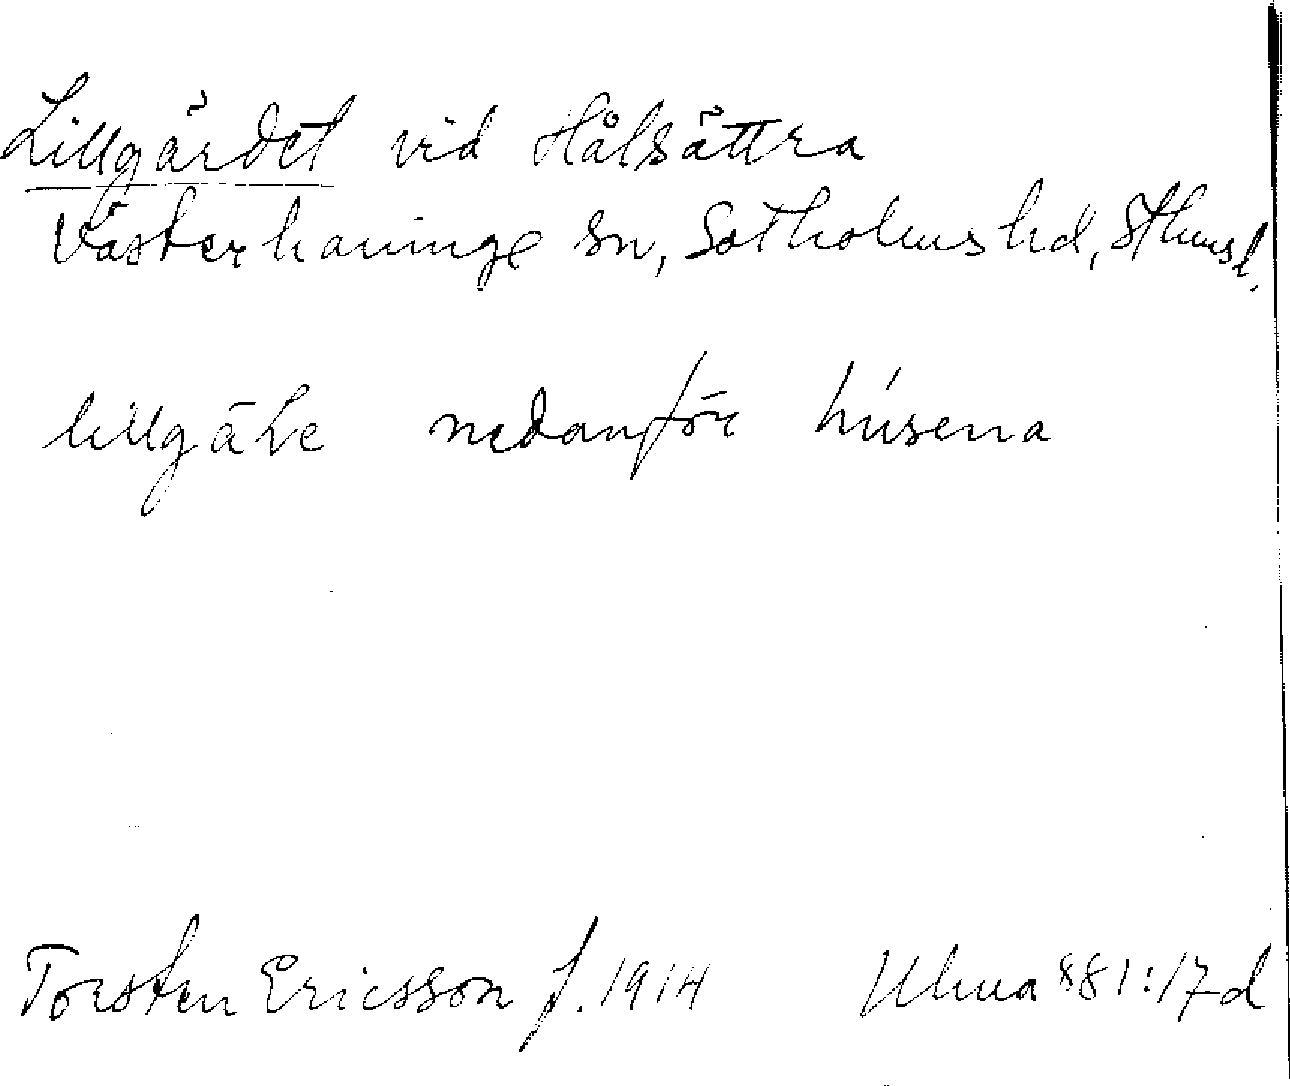 Lillgärdet vid Hålsättra
Västerhaninge sn, Sotholms hd, Sthms l.
nedanför húsena
Torsten Ericsson f. 1914 Ulma 881:17d